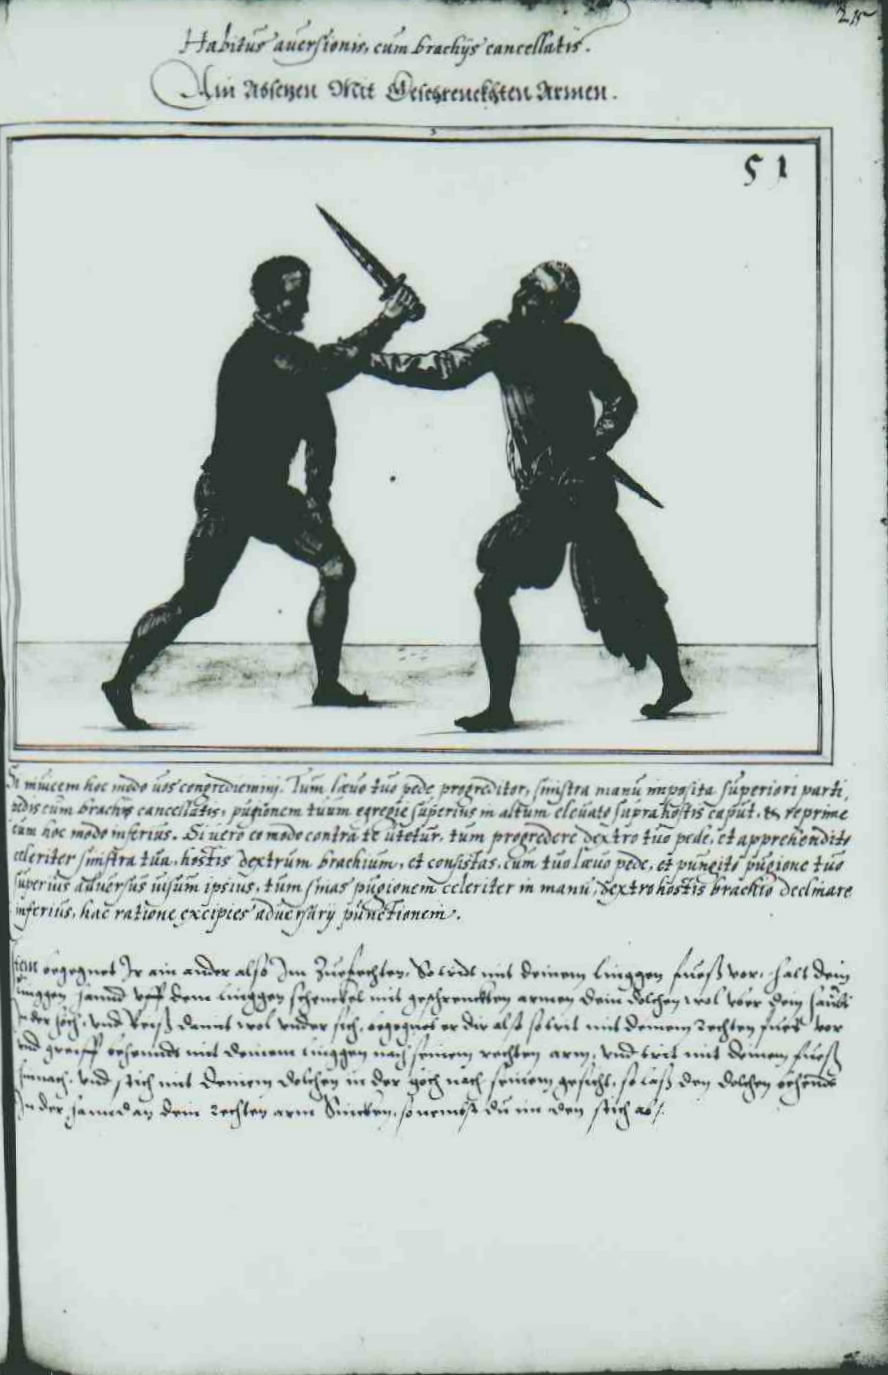 Habitus aversionis, cum brachijs cancellatis.
Ain Absetzen Mit Geschrenckhten Armen.
51
Si invicem hoc modo vos congrediemini. Tum laevo tuo pede progreditor, sinistra manu imposita superiori parti
pedis cum brachijs cancellatis, pugionem tuum egregie superius in altum elevato supra hostis caput, & reprime
eum hoc modo inferius. Si vero eo modo contra te utetur, tum progredere dextro tuo pede, et apprehendito
celeriter sinistra tua, hostis dextrum brachium, et consistas, cum tuo laevo pede, et pungito pugione tuo
superius adversus visum ipsius, tum sinas pugionem celeriter in manu, dextro hostis brachio declinare
inferius, hac ratione excipies adversarij punctionem.
Item begegnet Ir ain ander also Im Zuefechten, So trit mit deinem linggen fuess vor, halt dein
linggen hannd uff dem linggen schenckel mit geschrenckten armen dein dolchen wol uber dein haubt
In der höch, und Reiss damit wol under sich, begegnet er dir also so trit mit deinem rechten fuess vor
und greiff behennd mit deinem linggen nach seinem rechten arm, und trit mit deinem fuess
hinnach, und stich mit deinem dolchen in der höch nach seinem gesicht, so lass den dolchen behend
In der hannd an dein rechten arm Sincken, so nembst du im den stich ab.